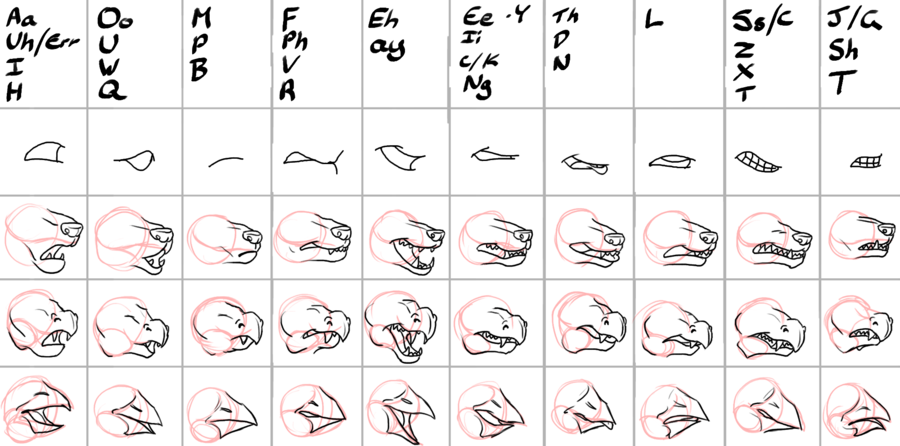 Aa
Uh/Err
I
H
Oo
U
W
Q
M
P
B
F
Ph
V
R
Eh
ay
Ee -Y
Ii
C/K
Ng
Th
D
N
L
Ss/C
Z
X
T
J/G
Sh
T